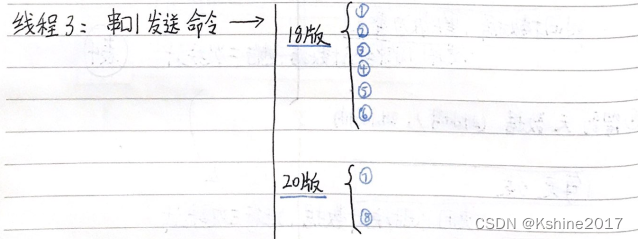 线程3：串口1发送命令 →
18版
①
②
③
④
⑤
⑥
20版
⑦
⑧
CSDN @Kshine2017